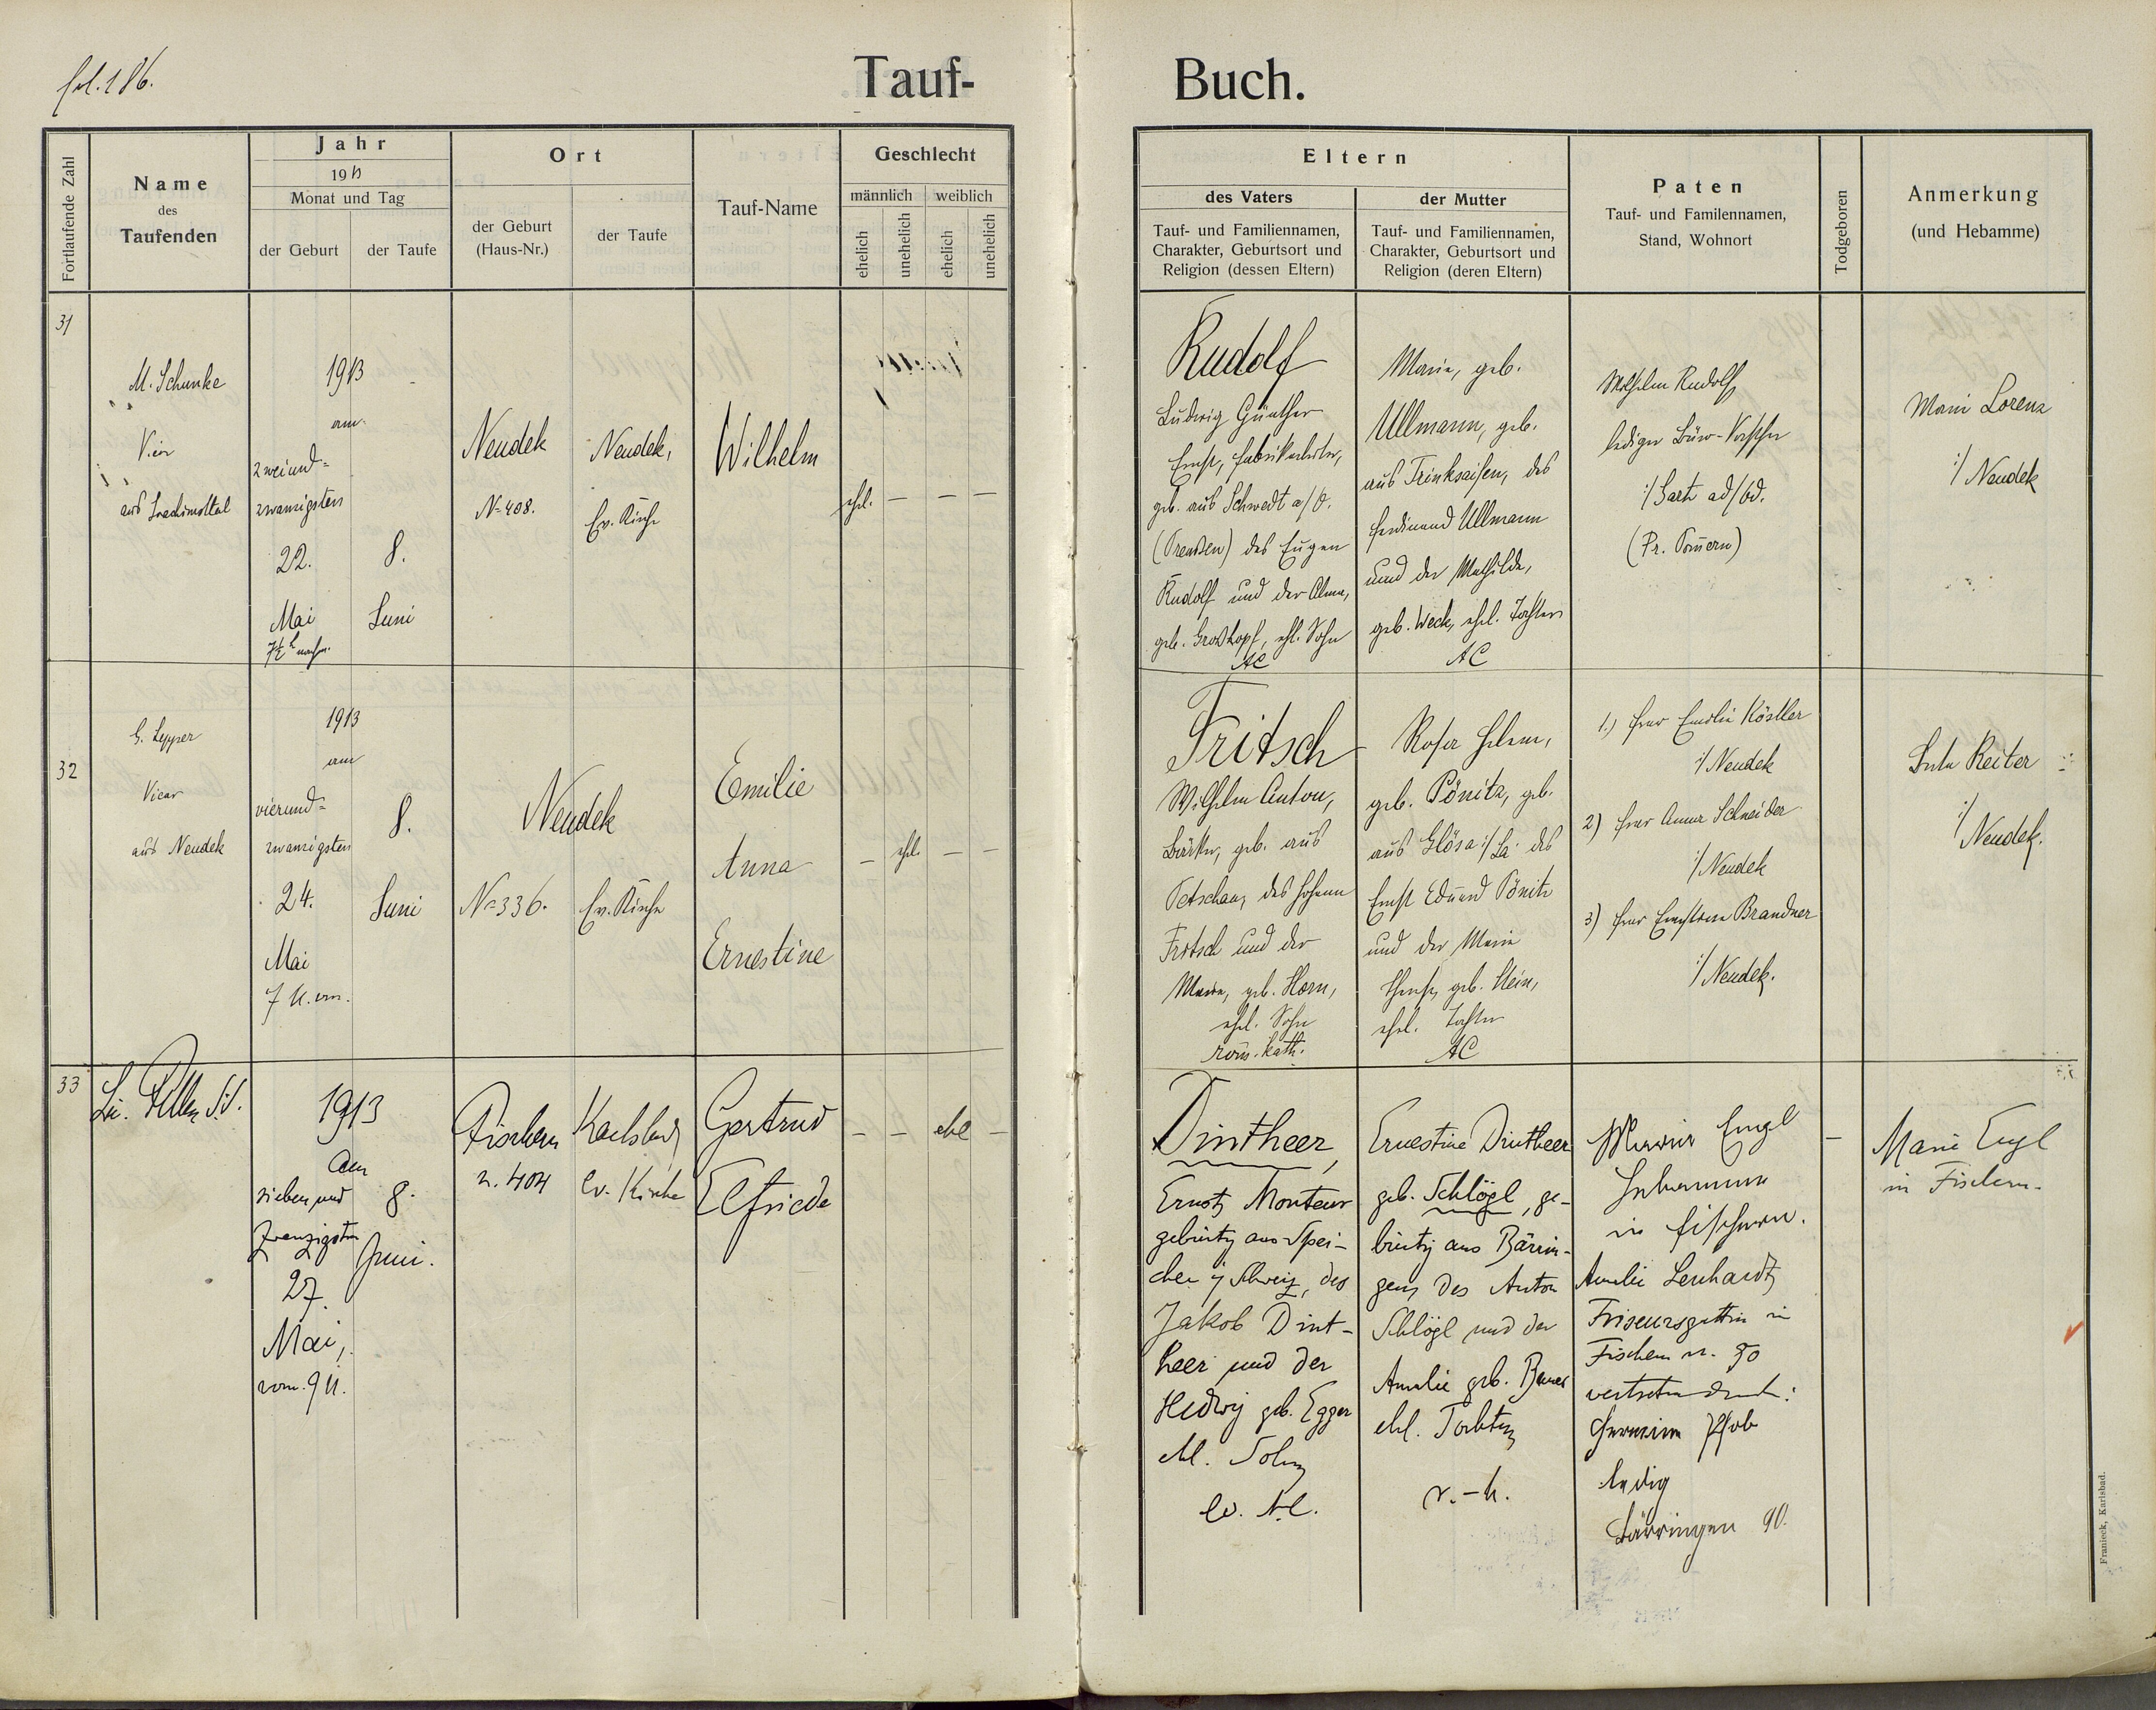 fol. 186.
Tauf-
Buch.
Fortlaufende Zahl
Name
des
Taufenden
Jahr
1913
Monat und Tag
der Geburt
der Taufe
Ort
der Geburt
(Haus-Nr.)
der Taufe
Tauf-Name
Geschlecht
männlich
weiblich
ehelich
unehelich
ehelich
unehelich
Eltern
des Vaters
Tauf- und Familiennamen,
Charakter, Geburtsort und
Religion (dessen Eltern)
der Mutter
Tauf- und Familiennamen,
Charakter, Geburtsort und
Religion (deren Eltern)
Paten
Tauf- und Familennamen,
Stand, Wohnort
Todgeboren
Anmerkung
(und Hebamme)
31
M. Schunke
aus
1913
am
zweiund=
zwanzigsten
22.
Mai
7½ h nachm.
8.
Juni
Neudek
No 408.
Neudek,
Ev. Kirche
Wilhelm
ehel. — — —
Rudolf
Ludwig Günther
Ernst, Fabrikarbeiter,
geb. aus Schwedt a/O.
(Preußen) des Eugen
Rudolf und der
geb. Großkopf, ehl. Sohn
AC
Marie, geb.
Ullmann, geb.
aus Trinksaifen, des
Ferdinand Ullmann
und der Mathilde,
geb. Weck, ehel. Tochter
AC
Wilhelm Rudolf
lediger
:/ Gartz ad/Od.
(Pr. Pom̄ern)
Marie Lorenz
:/ Neudek
32
Vicar
aus Neudek
1913
am
vierund=
zwanzigsten
24.
Mai
7 U. vm.
8.
Juni
Neudek
No 336.
Ev. Kirche
Emilie
Anna
Ernestine
— ehel. — —
Fritsch
Wilhelm Anton,
geb. aus
Petschau, des Johann
Fritsch und der
Maria, geb. Horn,
ehel. Sohn
röm. kath.
Rosa Helene,
geb. Pönitz, geb.
aus Glösa :/ Sa. des
Ernst Eduard Pönitz
und der Marie
geb. Klein,
ehel. Tochter
AC
1.) Frau Emilie Köstler
:/ Neudek
2) Frau Anna Schneider
:/ Neudek
3) Frau Ernestine Brandner
:/ Neudek.
Reiter
:/ Neudek.
33
1913
am
sieben und
zwanzigsten
27.
Mai,
vorm. 9 U.
8.
Juni.
Fischern
n. 404
Karlsbad
Ev. Kirche
Gertrud
Elfriede
— — ehel —
Dintheer,
Ernst, Monteur
gebürtig aus Spei-
cher i/ Schweiz, des
Jakob Dint-
heer und der
Hedwig geb. Egger
ehl. Sohn
ev. A.C.
Ernestine Dintheer
geb. Schlögl, ge-
bürtig aus Bärrin-
gen, des Anton
Schlögl und der
Amalie geb. Bauer
ehl. Tochter
r.-k.
Marie Engl
Hebamme
in Fischern.
Amalie Lenhardt
Friseursgattin in
Fischern n. 90
vertreten durch:
ledig
Bärringen 90.
—
Marie Engl
in Fischern.
Franieck, Karlsbad.